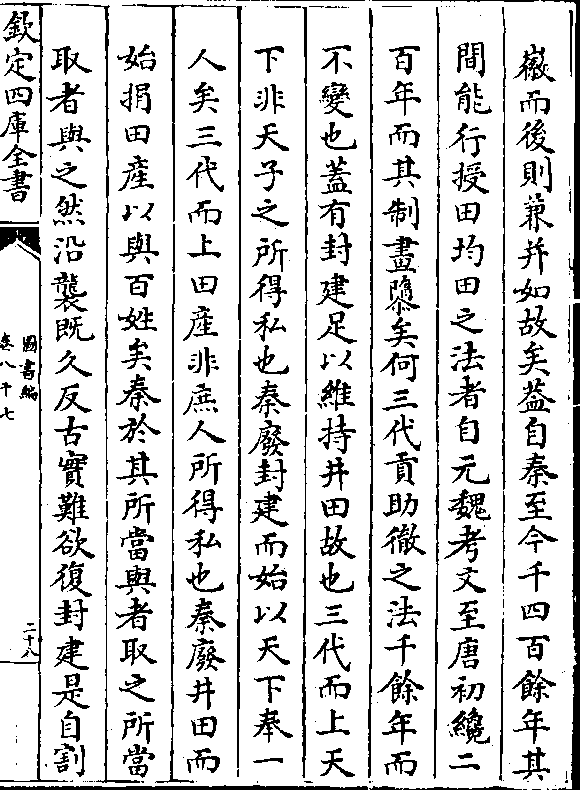 嶶而後則兼并如故矣葢自秦至今千四百餘年其
間能行授田均田之法者自元魏考文至唐初纔二
百年而其制盡隳矣何三代貢助徹之法千餘年而
不變也蓋有封建足以維持井田故也三代而上天
下非天子之所得私也秦廢封建而始以天下奉一
人矣三代而上田産非庶人所得私也秦廢井田而
始捐田産以與百姓矣秦於其所當與者取之所當
取者與之然沿襲既久反古實難欲復封建是自割
欽定四庫全書
圖書編
卷八十七
二十八